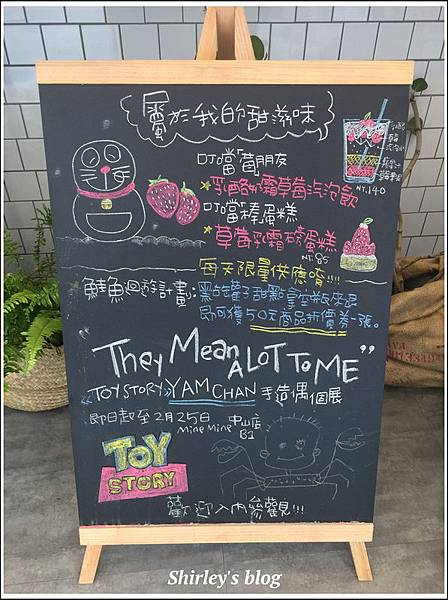 屬於我的甜滋味
叮噹莓朋友
★乳酪奶霜草莓冰沙飲
NT.140
叮噹棒蛋糕
★草莓乳霜磅蛋糕
NT.85
每天限量供應唷!!!!
鮭魚迴游計畫:
即可獲50元商品折價券一張。
"They Mean A LOT TO ME"
《TOYSTORY》YAM CHAN 手造偶個展
即日起至2月25日 Mine Mine 中山店 B1
TOY STORY
歡迎入內參觀!!!
Shirley's blog